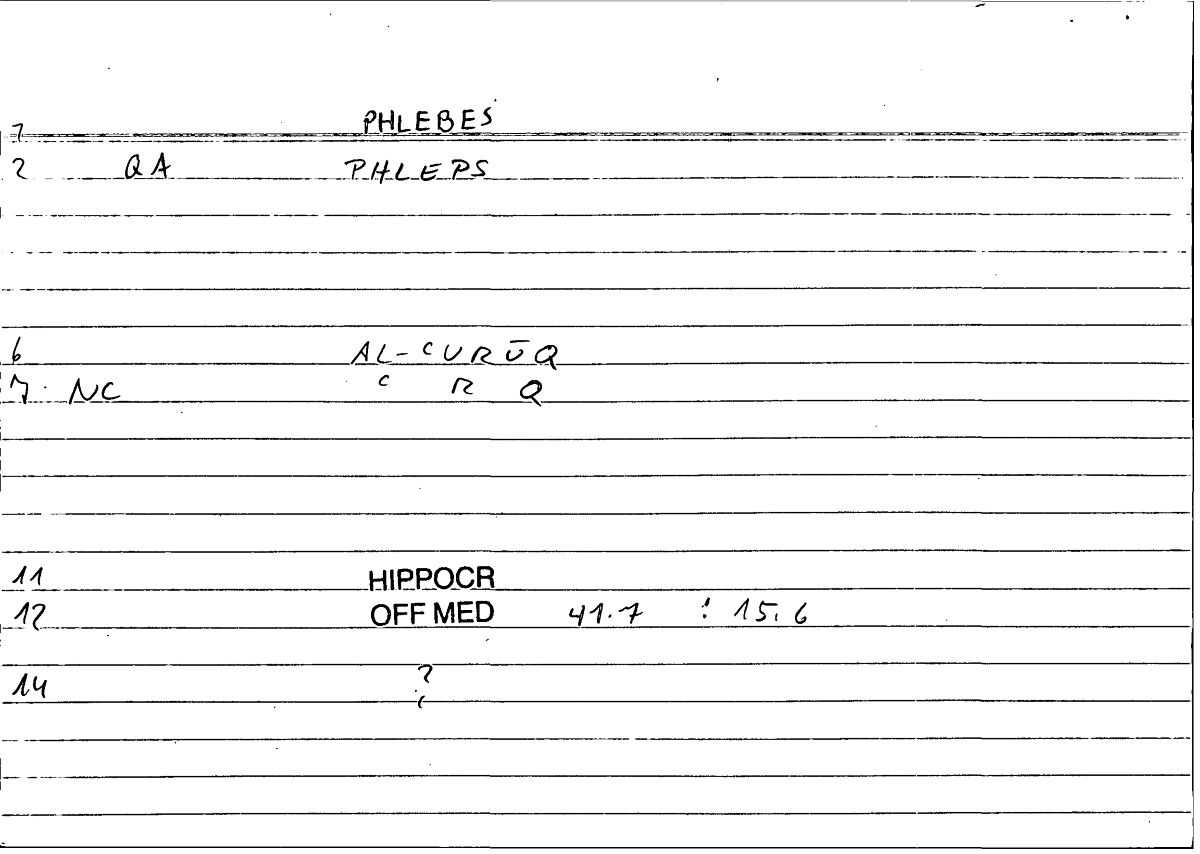 1 PHLEBES
2 QA PHLEPS
6 AL-ᶜURŪQ
7 NC ᶜ R Q
11 HIPPOCR
12 OFF MED 41.7 : 15.6
14 ?